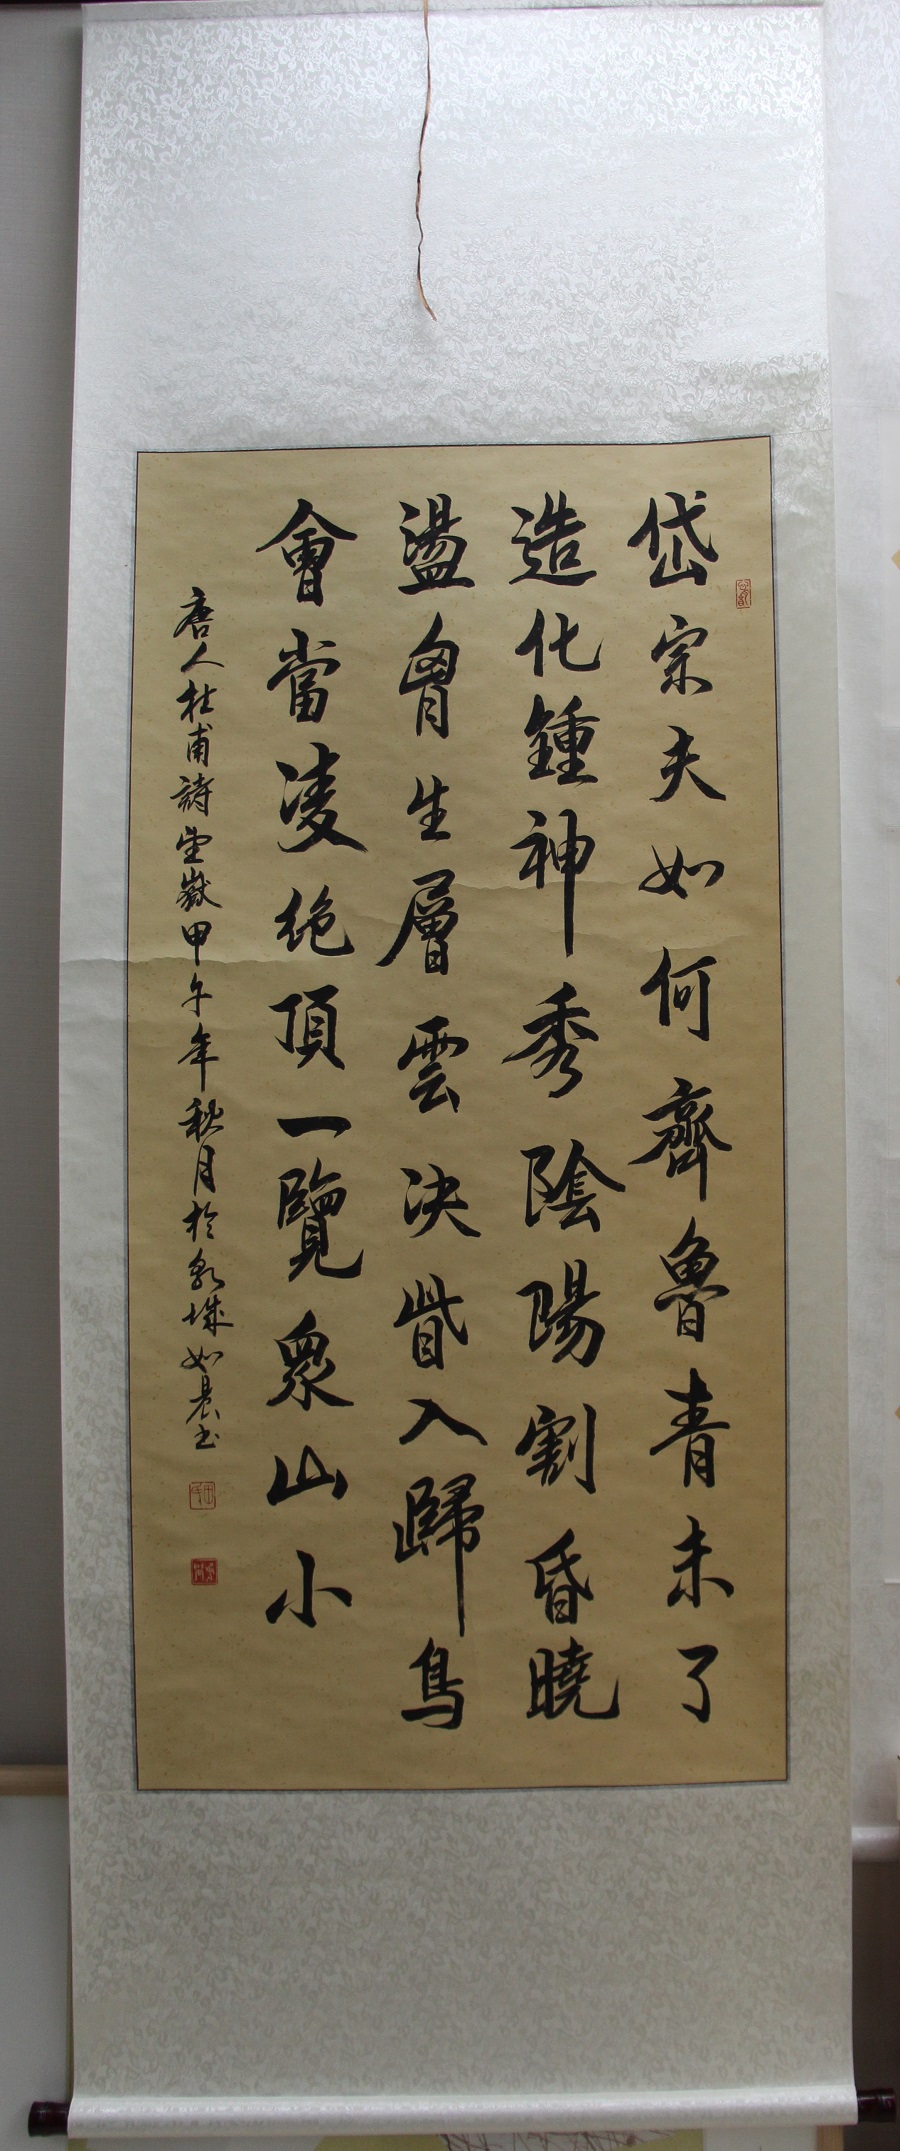 岱宗夫如何齊魯青未了
造化鍾神秀陰陽割昏曉
盪胷生層雲决眥入歸鳥
會當凌絶頂一覽衆山小
唐人杜甫詩望嶽甲午年秋月於泉城如晨书